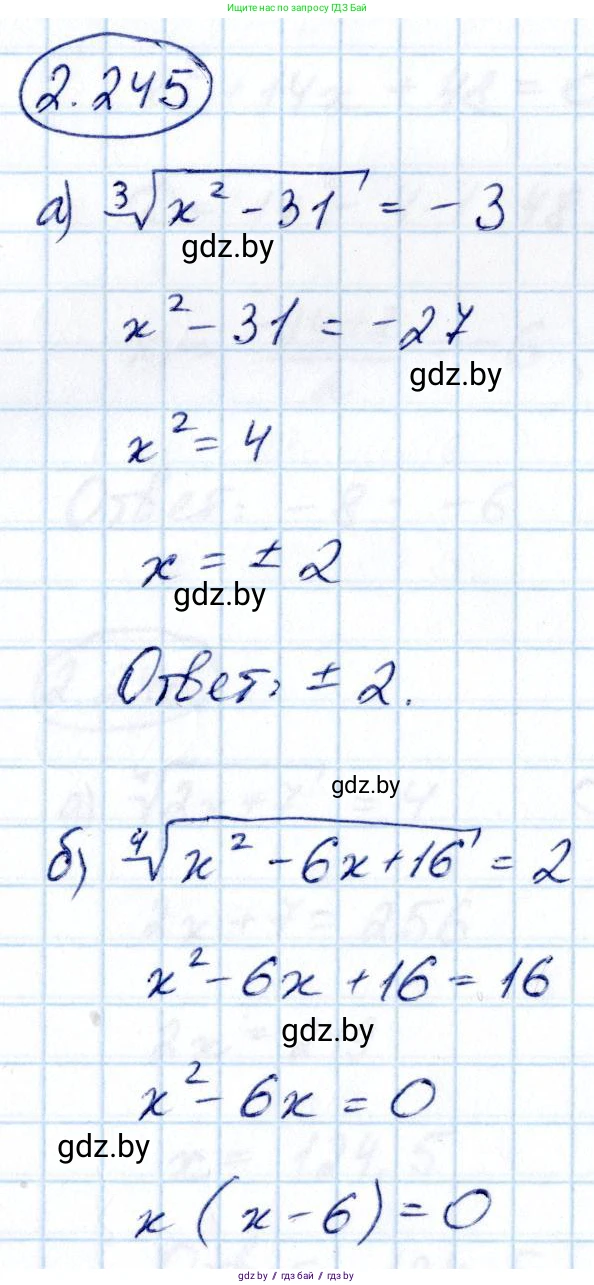 Ищите нас по запросу ГДЗ Бай
2.245
а) ∛(x² - 31) = - 3
gdz.by
x² - 31 = - 27
gdz.by
x² = 4
x = ± 2
gdz.by
Ответ: ± 2.
gdz.by
б) ∜(x² - 6x + 16) = 2
x² - 6x + 16 = 16
gdz.by
x² - 6x = 0
gdz.by
x (x - 6) = 0
gdz.by / гдз бай / gdz.by